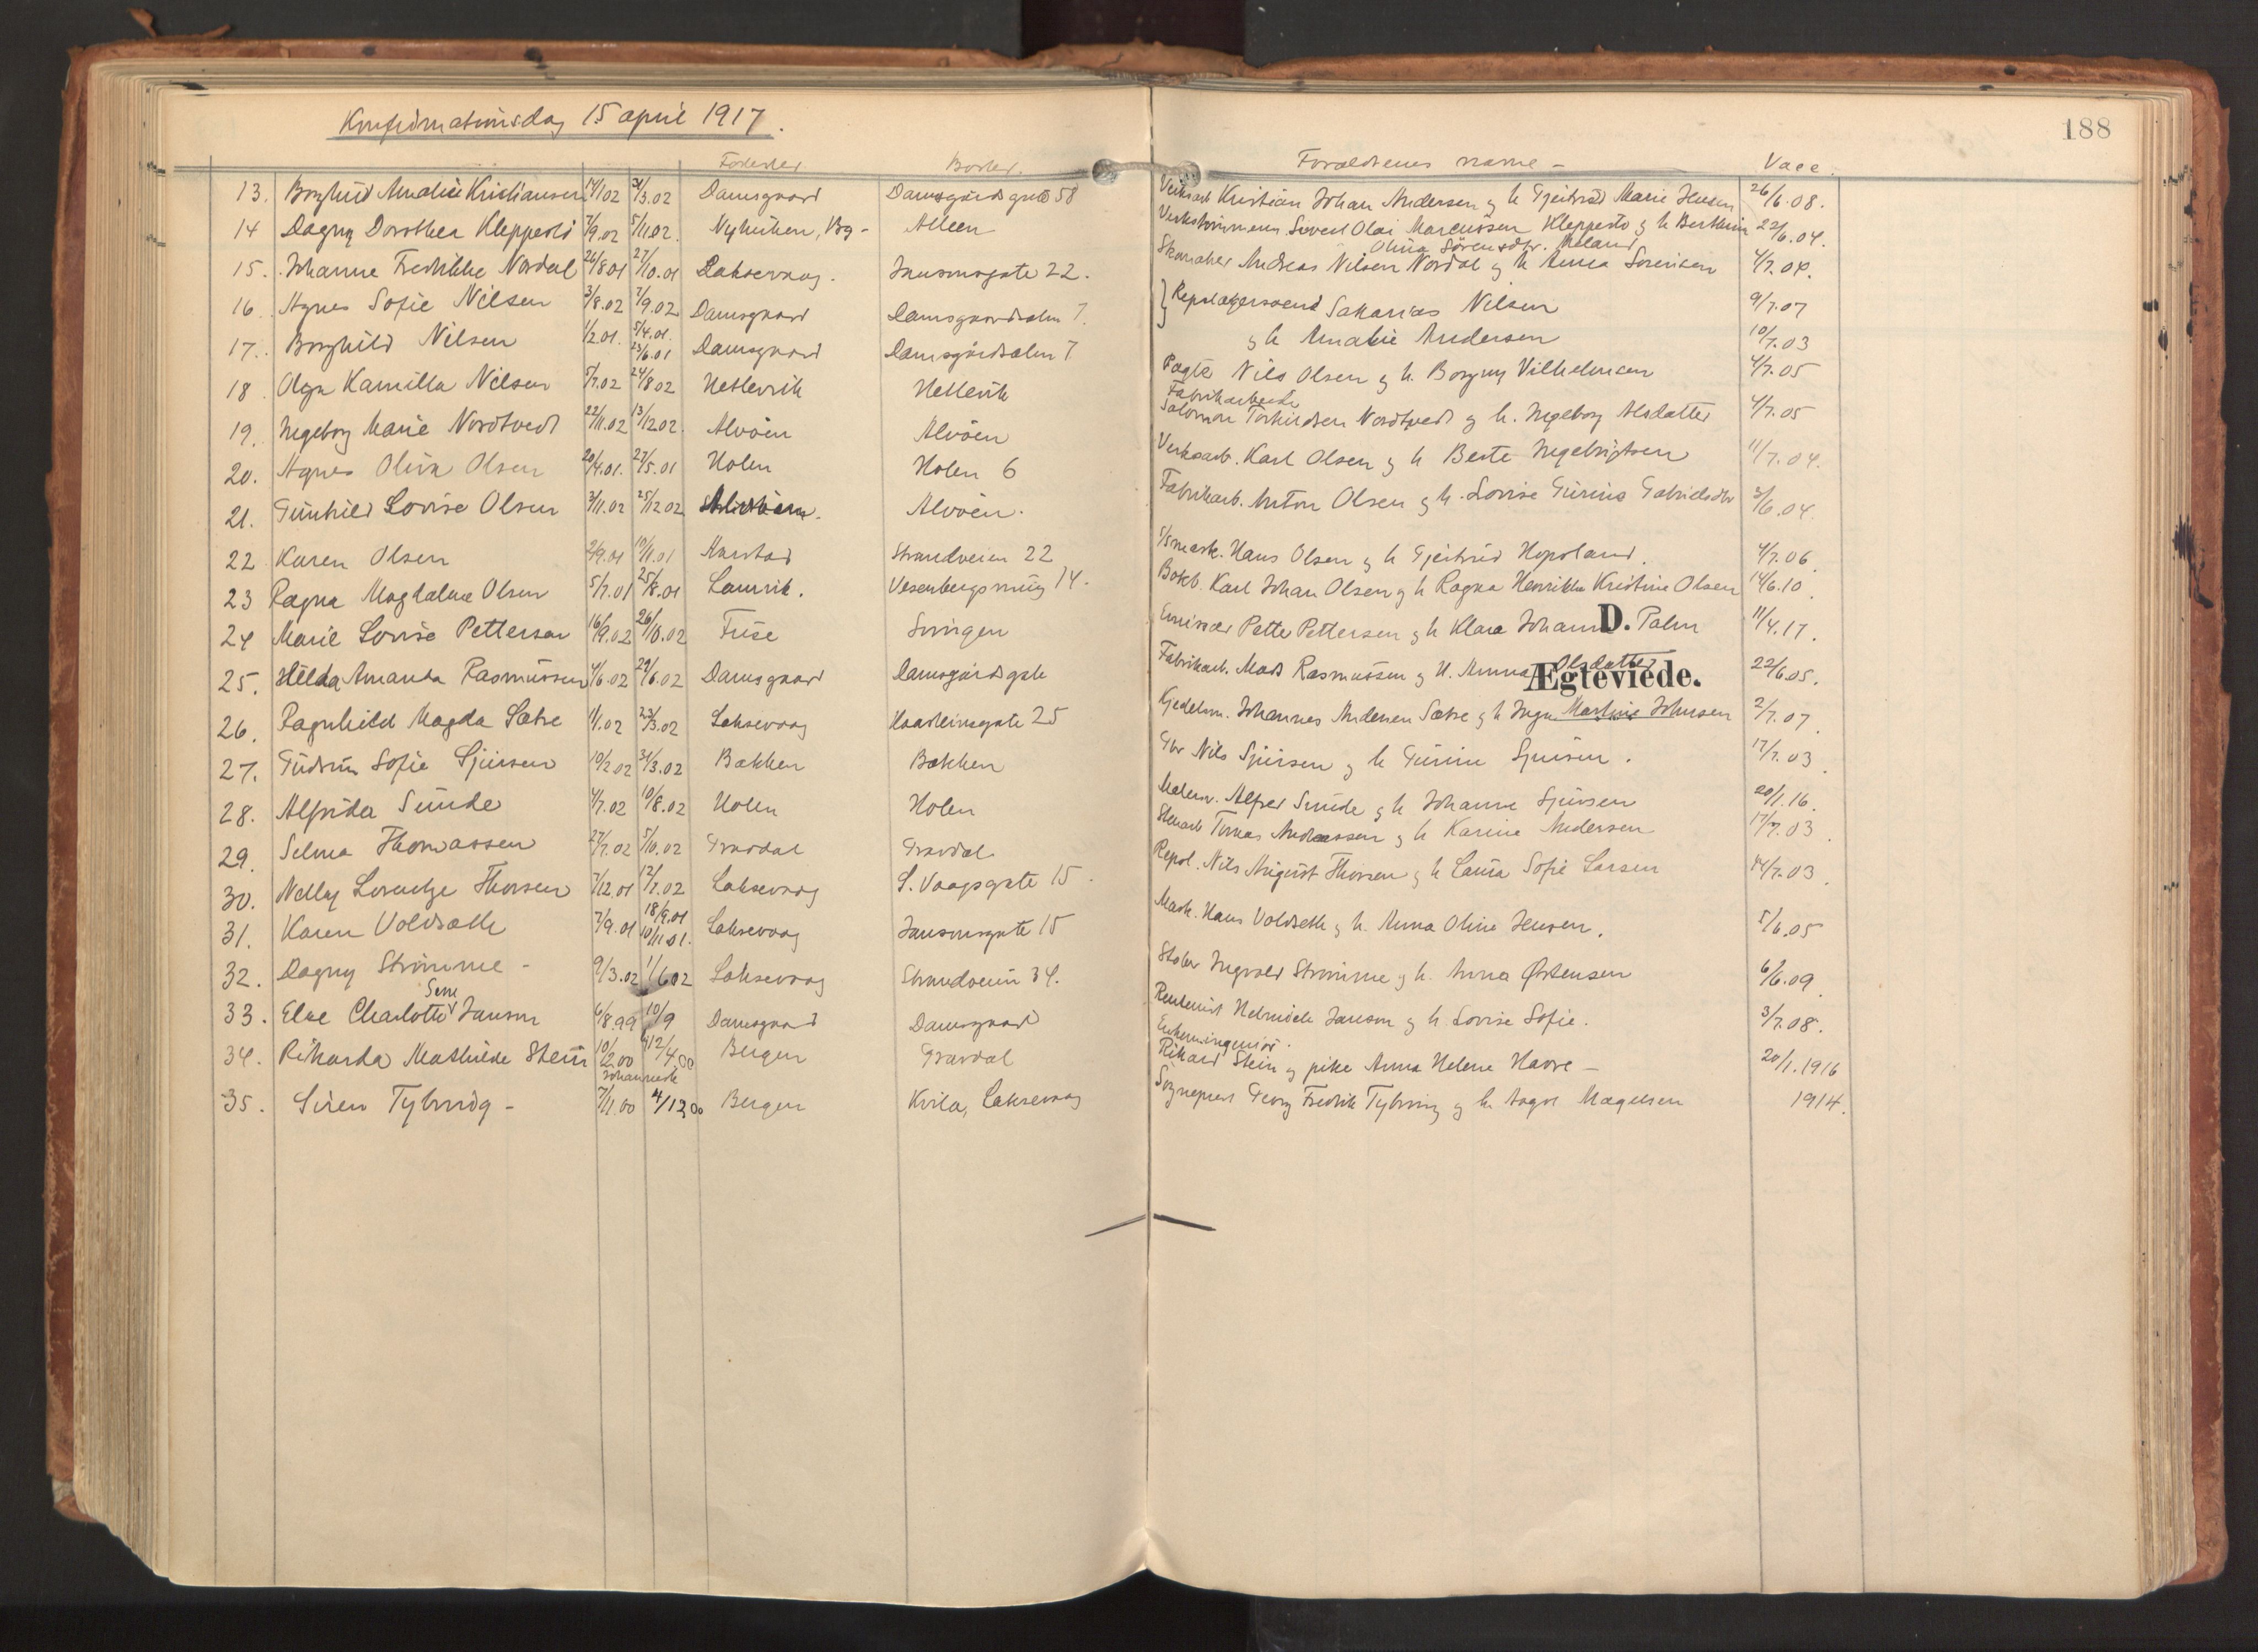 Konfirmationsdag 15 april 1917.
188
Fødested Bosted. Forældrenes navne - Vacc.
13. Borghild Amalie Kristiansen 14/1 02 31/3.02 Damsgaard Damsgårdsgate 58 Verksarb Kristian Johan Andersen og h Gjertrud Marie Jensen 26/6.08.
14 Dagny Dorothea Kleppestö 7/9.02 5/11.02. Nyhavn, Bg - Alleen Sivert Olai Marcussen Kleppestö og h Berthine 22/6.04.
Olina Sörensdtr. Meland
15. Johanne Fredrikke Nordal 26/8 01 27/10.01 Laksevaag. Jansonsgate 22. Skomaker Andreas Nilsen Nordal og h Anna Sorensen 4/7.04.
16. Agnes Sofie Nilsen 3/8.02 7/9.02 Damsgaard Damsgaardsalm 7. Repslagersvend Sakarias Nilsen 9/7.07
17. Borghild Nilsen 1/2.01. 5/4.01. 23/6.01 Damsgaard Damsgårdsalm 7 og h Amalie Andersen 10/7.03
18 Olga Kamilla Nilsen 5/7.02 24/8 02 Hetlevik Hetlevik Nils Olsen og h. Borgny Vilhelmsen 4/7.05
19. Ingeborg Marie Nordtvedt 22/11.02 13/12 02. Alvöen Alvöen Fabrikarbeider
Salomon Torkildsen Nordtvedt og h. Ingeborg Alsdatter 4/7.05
20. Agnes Oliva Olsen 20/4.01. 27/5.01 Holen Holen 6 Verksarb. Karl Olsen og h Berte Ingebrigtsen 11/7.04.
21. Gunhild Lovise Olsen 3/11.02 25/12 02 Alvöen. Fabrikarb. Anton Olsen og h. Lovise Gurine Gabrielsdtr 3/6.04.
22 Karen Olsen 2/9.01 10/11.01 Harstad Strandveien 22 Hans Olsen og h Gjertrud Hopsland. 4/7.06.
23 Ragna Magdalene Olsen 5/7.01 25/8.01 Larvik. Vesenbergsmug 14. Bokb. Karl Johan Olsen og h Ragna Henrikke Kristine Olsen 14/6.10.
24 Marie Lovise Pettersen 16/9.02 26/10.02 Fuse Svingen Emissær Petter Pettersen og h Klara Johan D. Palm 11/4.17.
25. Hilda Amanda Rasmussen 4/6.02 29/6.02 Damsgaard Damsgårdsgate Fabrikarb. Mads Rasmussen og H. Anna Olsdatter 22/6.05.
Ægteviede.
26. Ragnhild Magda Sætre 1/1.02 23/3.02 Laksevaag Haarleinsgate 25 Gjedelsm. Johannes Andersen Sætre og h Inga Martine Johnsen 2/7.07
27. Gudrun Sofie Sjursen 19/2.02 31/3.02 Bakken Bakken Nils Sjursen og h Gurine Sjursen. 17/7.03.
28. Alfrida Sunde 4/7.02 10/8.02 Holen Holen Malerm. Alfred Sunde og h Johanne Sjursen 20/1.16.
29. Selma Thomassen 27/7.02 5/10.02 Gravdal Gravdal Stenarb Tomas Andreassen og h Karine Andersen 17/7.03.
30. Nelly Lorentze Thorsen 7/12.01 12/1.02 Laksevaag L. Vaagsgate 15. Repsl. Nils August Thorsen og h Laura Sofie Larsen 14/7.03.
31. Karen Voldseth 7/9.01 18/9.01 10/11 01. Laksevaag Jansonsgate 15 Mask. Hans Voldseth og h. Anna Oline Jensen. 5/6.05
32. Dagny Strømme - 9/3.02 1/6 02 Laksevaag Strandveien 34. Ingvald Strømme og h. Anna Østensen 6/6.09.
33. Else Charlotte Sene Janson 6/8.99 10/9 Damsgaard Damsgaard Helmich Janson og h Lovise Sofie. 3/7.08.
34. Rikarda Mathilde Stein 10/2.00 12/4.00 Bergen Gravdal
Rikard Stein og pike Anna Helene Havre - 20/1.1916
Johannesk
35. Siren Tybring - 7/11 00 4/12,00 Bergen Kvila, Laksevaag Sogneprest Georg Fredrik Tybring og h. Aagot Magelsen 1914.